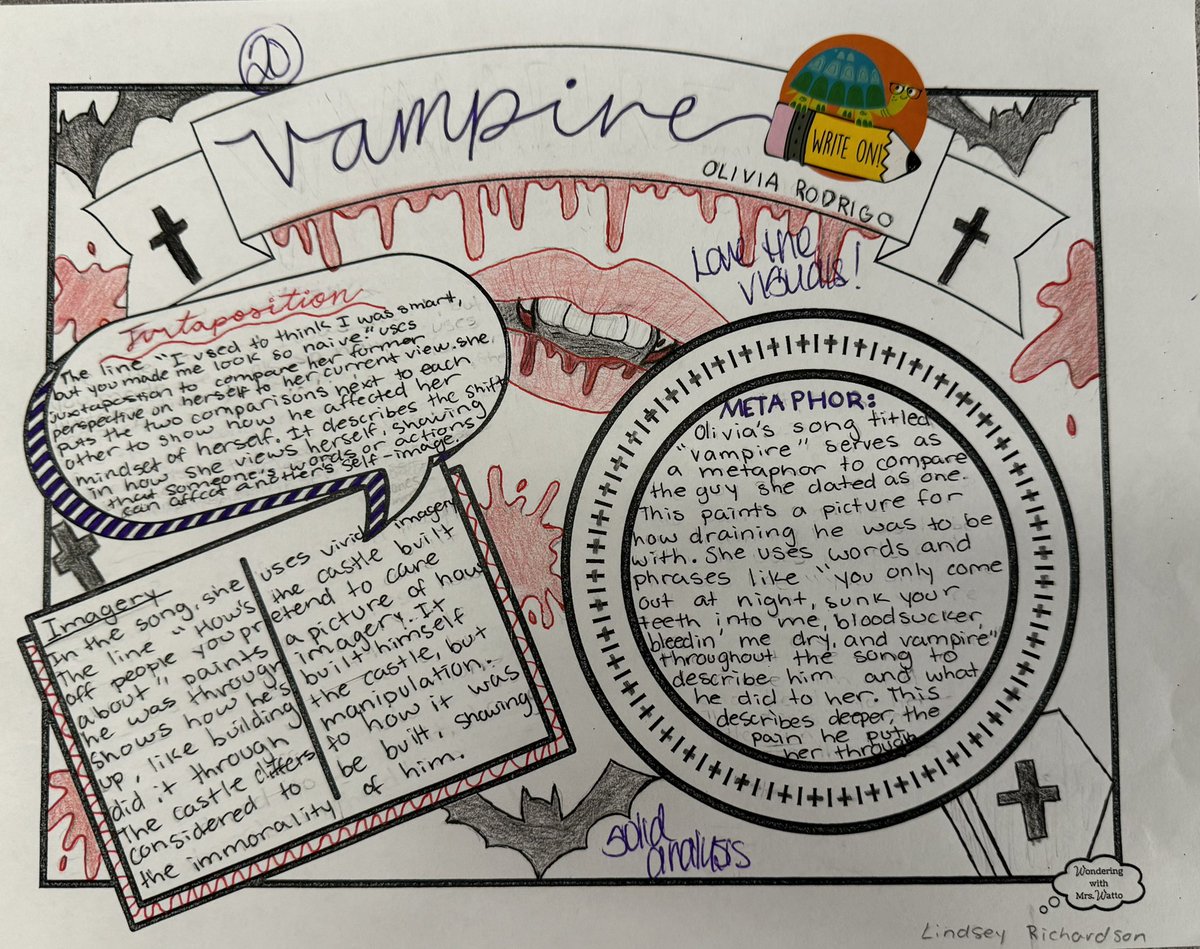 20
vampire
WRITE ON!
OLIVIA RODRIGO
Love the
visuals!
Juxtaposition
The line "I used to think I was smart,
but you made me look so naive." uses
juxtaposition to compare her former
perspective on herself to her current view. She
puts the two comparisons next to each
other to show how he affected her
mindset of herself. It describes the shift
in how she views herself, showing
that someone's words or actions
can affect another's self-image.
METAPHOR:
Olivia's song titled
"vampire" serves as
a metaphor to compare
the guy she dated as one.
This paints a picture for
how draining he was to be
with. She uses words and
phrases like "you only come
out at night, sunk your
teeth into me, bloodsucker,
bleedin' me dry, and vampire"
throughout the song to
describe him and what
he did to her. This
describes deeper, the
pain he put
her through
Imagery
In the song, she uses vivid imagery
The line "How's the castle built
off people you pretend to care
about" paints a picture of how
he was through imagery. It
shows how he's built himself
up, like building the castle, but
did it through manipulation.
The castle differs to how it was
considered to be built, showing
the immorality of him.
solid
analysis
Wondering
with
Mrs. Watto
Lindsey Richardson